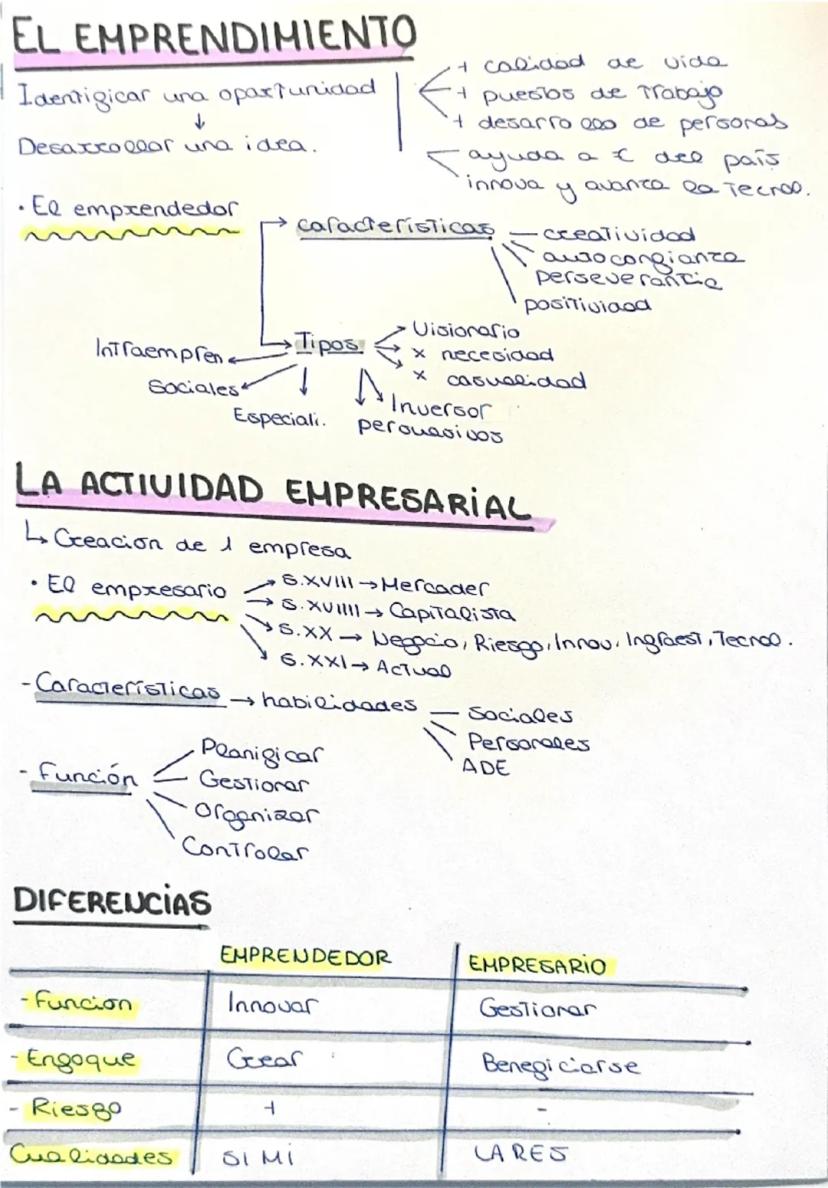 EL EMPRENDIMIENTO
Identificar una oportunidad
↓
Desarrollar una idea.
+ calidad de vida
+ puestos de trabajo
+ desarrollo de personas
ayuda a € del país
innova y avanza la tecnol.
• El emprendedor
→ características
creatividad
autoconfianza
perseverantia
positividad
→ Tipos
Visionario
x necesidad
x casualidad
Inversor
persuasivos
Especiali.
Sociales
Intraempren
LA ACTIVIDAD EMPRESARIAL
↳ Creación de 1 empresa
• El empresario
S.XVIII → Mercader
S.XVIIII → Capitalista
S.XX → Negocio, Riesgo, Innov, Infraest, Tecnol.
S.XXI → Actual
- Características → habilidades
Sociales
Personales
ADE
- Función
Planificar
Gestionar
Organizar
Controlar
DIFERENCIAS
EMPRENDEDOR EMPRESARIO
- Función Innovar Gestionar
- Enfoque Crear Beneficiarse
- Riesgo + -
Cualidades SI MI LARES